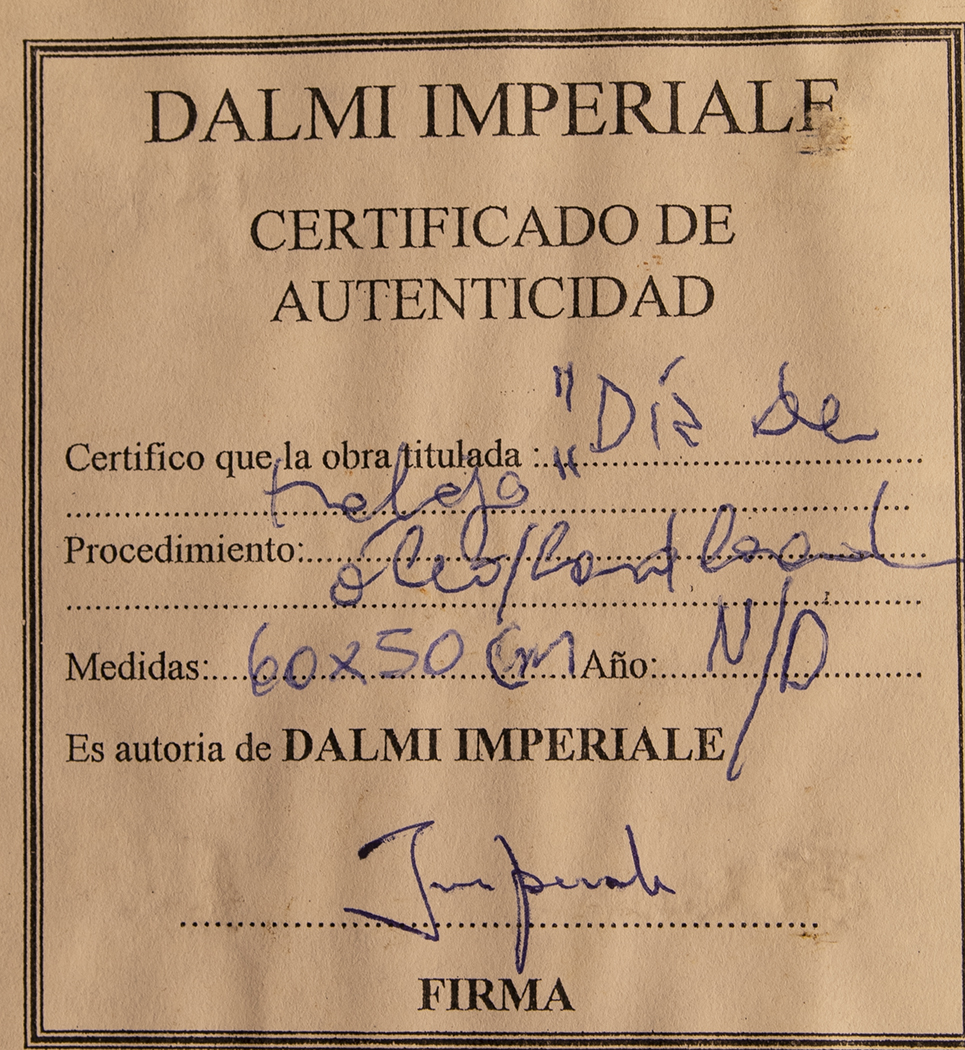 DALMI IMPERIALE
CERTIFICADO DE
AUTENTICIDAD
Certifico que la obra titulada : "Día de
"
Procedimiento: óleo/
Medidas: 60x50 cm Año: N/D
Es autoria de DALMI IMPERIALE
Imperiale
FIRMA